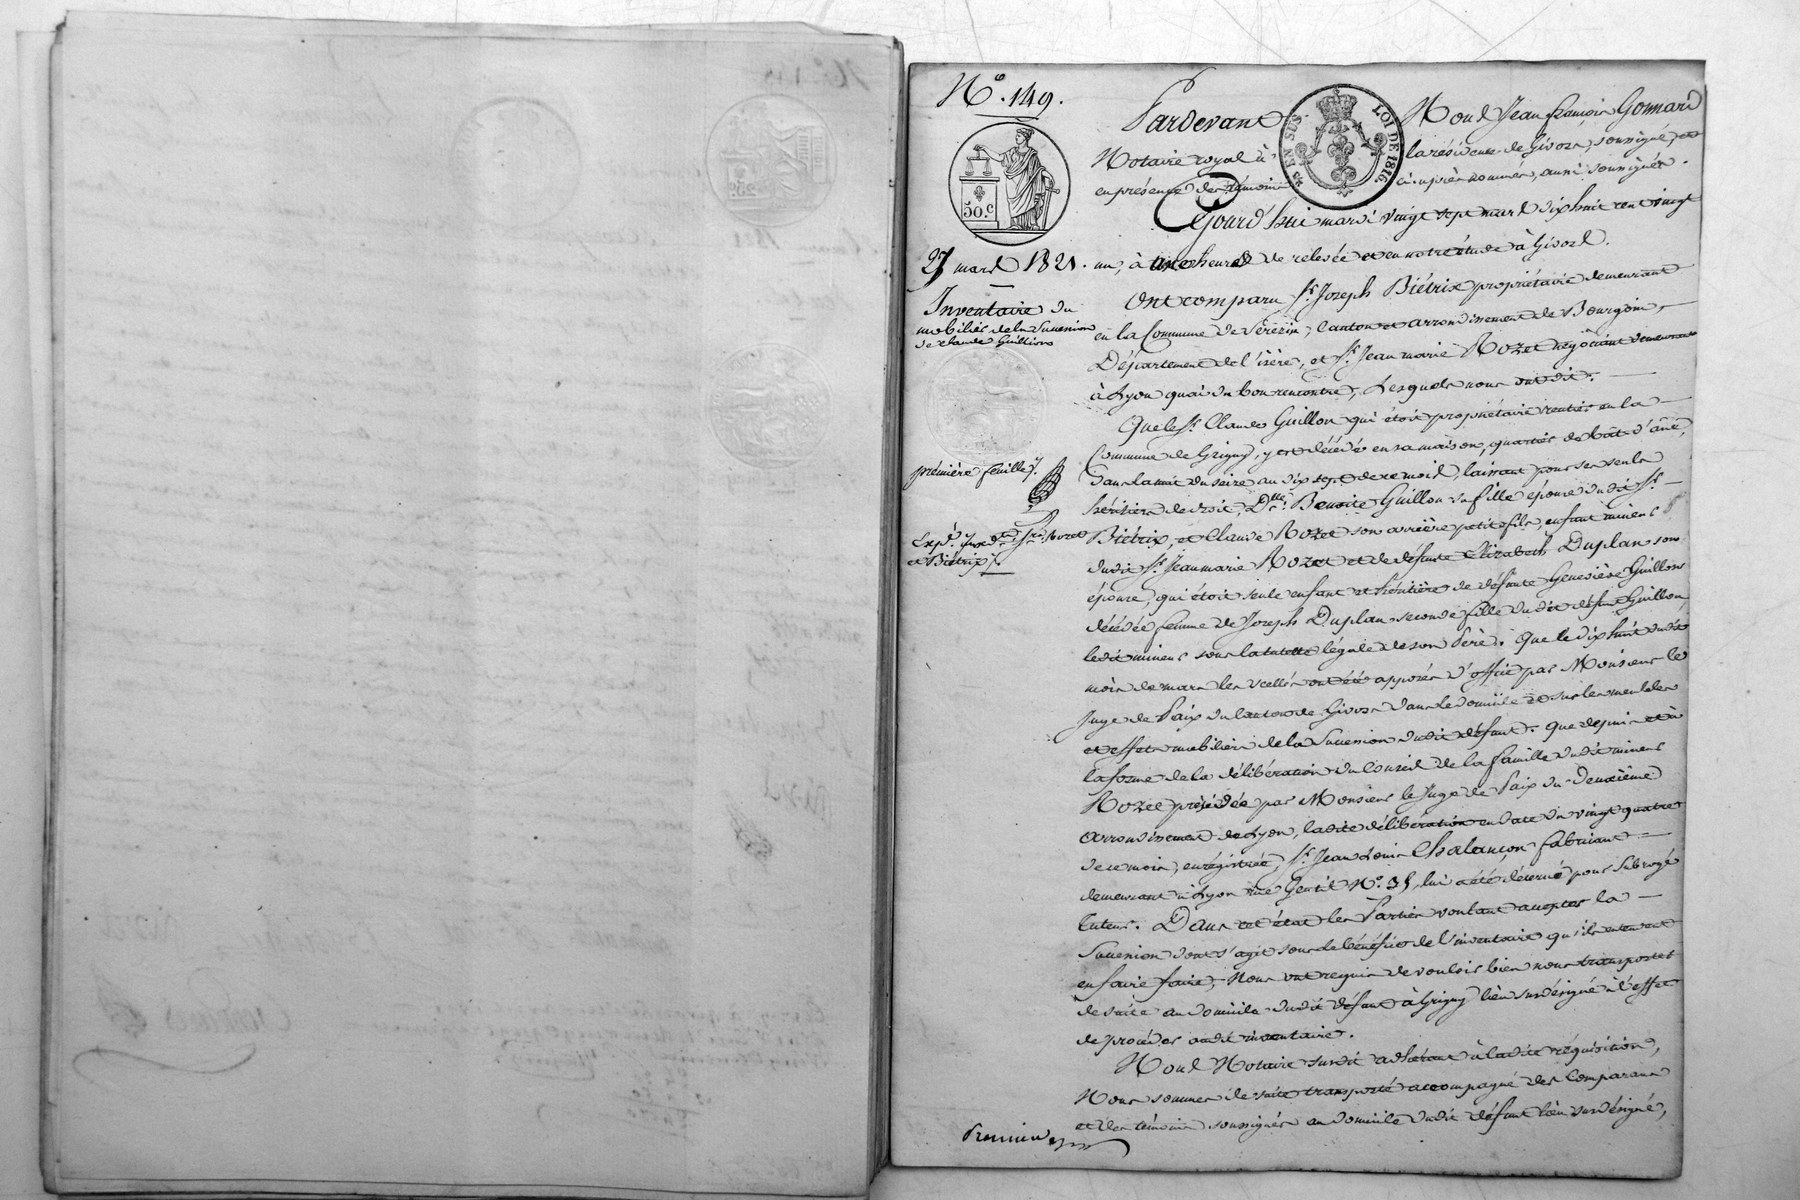 N.º 149.
Pardevant Nous Jean François Gonnard
Notaire royal à la résidence de Givors, soussigné, et
en présence des témoins ci après nommés, aussi soussignés.
EN SUS
LOI DE 1816
50.c
Cejourd'hui mardi vingt sept mars dix huit cent vingt
27 mars 1821.
un, à une heure de relevée et en notre étude à Givors.
Inventaire du
mobilier de la Succession
de claude Guillon
Ont comparu Sr. Joseph Biétrix propriétaire demeurant
en la Commune de Sérézin, canton et arrondissement de Bourgoin,
Département de l'isère, et Sr. Jean marie Rozet négociant demeurant
à Lyon quai du bon rencontre, Lesquels nous ont dit.
Que le Sr. Claude Guillon qui étoit propriétaire rentier en la
Commune de Grigny, y est décédé en sa maison, quartier de bât d'âne,
première feuille
dans la nuit du seize au dix sept de ce mois, laissant pour ses seuls
héritiers de droit, Dlle. Benoite Guillon sa fille épouse dudit Sr.
Expd. Srs. Rozet
et Biétrix
Biétrix, et Claude Rozet son arrière petit fils, enfant mineur
dudit Sr. Jean marie Rozet et de défunte Elizabeth Duplan son
épouse, qui étoit seule enfant et héritière de défunte Geneviève Guillon
décédée femme de Joseph Duplan, seconde fille dudit défunt Guillon,
ledit mineur sous la tutelle légale de son Père. Que le dix huit dudit
mois de mars les scellés ont été apposés d'office par Monsieur le
Juge de Paix du Canton de Givors dans le domicile et sur les meubles
et effets mobiliers de la Succession dudit défunt. Que depuis et à
la forme de la délibération du Conseil de la famille dudit mineur
Rozet présidée par Monsieur le Juge de Paix du Deuxième
arrondissement de Lyon, ladite délibération en date du vingt quatre
de ce mois, enregistrée, Sr. Jean Louis Chalançon fabricant
demeurant à Lyon rue Gentil N.º 35, lui a été déterné pour Subrogé
Tuteur. Dans cet état les Parties voulant accepter la
Succession dont s'agit sous le bénéfice de l'inventaire qu'ils entendent
en faire faire, Nous ont requis de vouloir bien nous transporter
de suite au domicile dudit défunt à Grigny lieu susdésigné à l'effet
de procéder audit inventaire.
Nous Notaire susdit adhérant à ladite réquisition,
Nous sommes de suite transporté accompagné des Comparans
et des témoins soussignés au domicile dudit défunt lieu susdésigné,